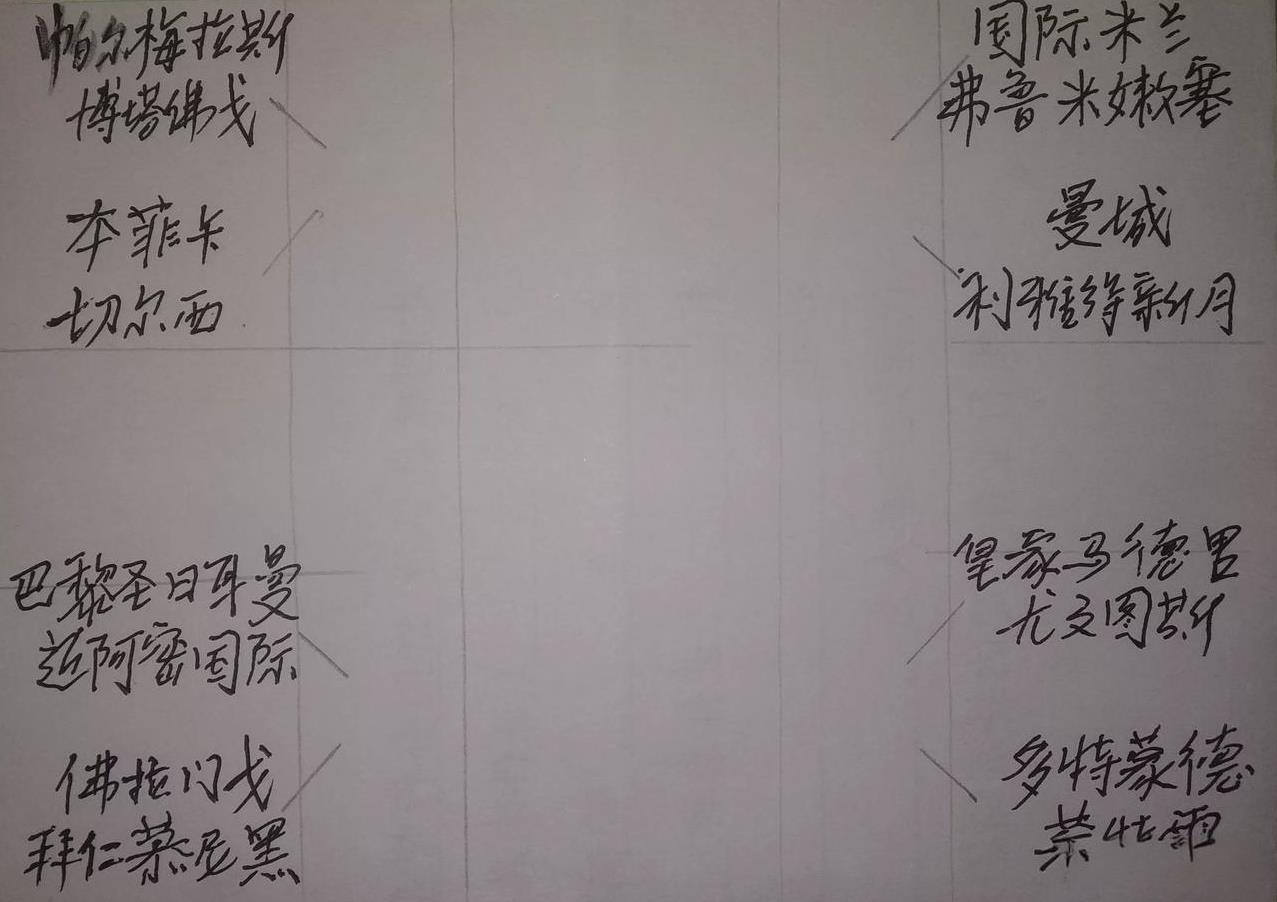 帕尔梅拉斯
博塔佛戈
本菲卡
切尔西
巴黎圣日耳曼
迈阿密国际
佛拉门戈
拜仁慕尼黑
国际米兰
弗鲁米嫩塞
曼城
利雅得新月
皇家马德里
尤文图斯
多特蒙德
蒙特雷